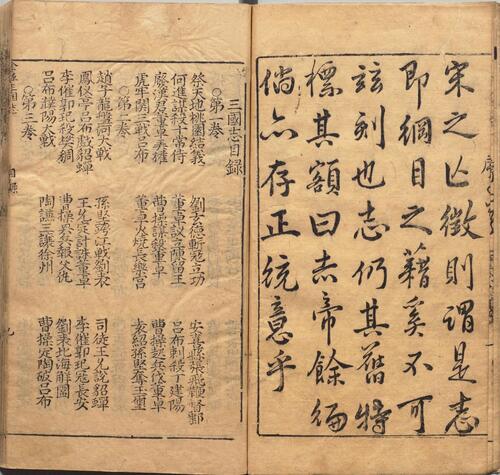 宋之亾徵則謂是志
即綱目之藉奚不可
茲刻也志仍其舊特
標其額曰赤帝餘編
倘亦存正統意乎
三國志目錄
○第一卷
祭天地桃園結義 劉玄德斬寇立功 安喜縣張飛鞭督郵
何進謀殺十常侍 董卓議立陳留王 呂布刺殺丁建陽
廢漢君董卓弄權 曹操謀殺董卓 曹操起兵伐董卓
虎牢關三戰呂布 董卓火燒長樂宮 袁紹孫堅奪玉璽
○第二卷
趙子龍盤河大戰 孫堅跨江戰劉表 司徒王允說貂蟬
鳳儀亭呂布戲貂蟬 王允定計誅董卓 李傕郭汜寇長安
李傕郭汜殺樊稠 曹操興兵報父仇 劉 北海解圍
呂布濮陽大戰 陶謙三讓徐州 曹操定陶破呂布
○第三卷
目錄